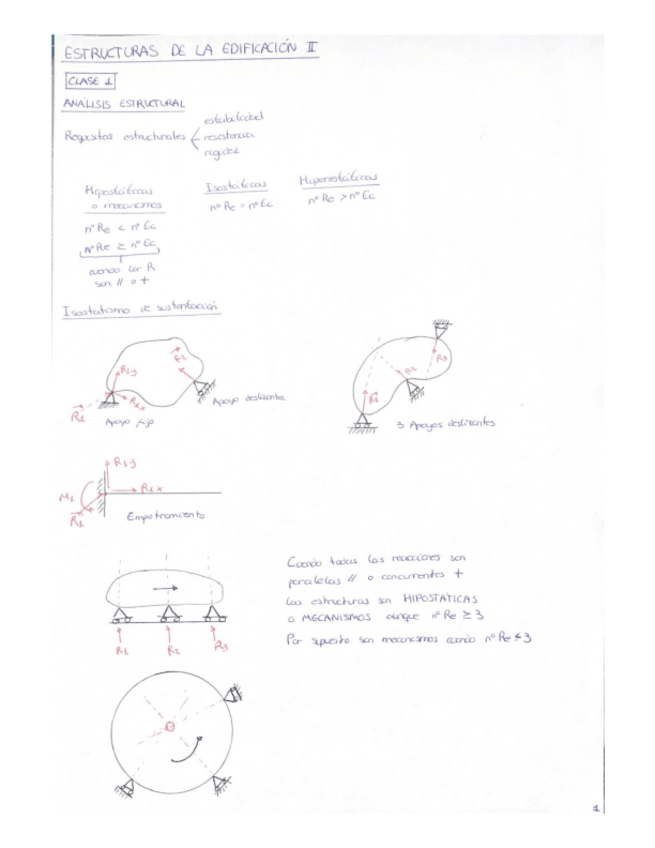 ESTRUCTURAS DE LA EDIFICACIÓN II
CLASE 1
ANÁLISIS ESTRUCTURAL
Requisitos estructurales
estabilidad
resistencia
rigidez
Hipostáticas
o mecanismos
nº Re < nº Ec
Nº Re ≥ nº Ec
cuando las R
son // o +
Isostáticas
nº Re = nº Ec
Hiperestáticas
nº Re > nº Ec
Isostatismo de sustentación
R1y
R1x
R1
R2
Apoyo fijo
Apoyo deslizante
R1
R2
R3
3 Apoyos deslizantes
R1y
R1x
M1
R1
Empotramiento
R1
R2
R3
Cuando todas las reacciones son
paralelas // o concurrentes +
las estructuras son HIPOSTÁTICAS
o MECANISMOS aunque nº Re ≥ 3
Por supuesto son mecanismos cuando nº Re < 3
1